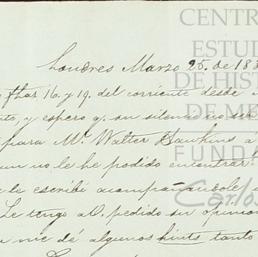 CENTR
ESTUD
DE HIST
DE M
FUND
Carlos
Londres Marzo 25. de 18
fhas 16. y 19. del corriente desde
to, y espero q. su silencio no se
para Mr. Walter Hawkins a
un no le he podido encontrar.
le escribí acompañandole
Le tengo a U. pedido su opinion
me dé algunos hints tanto